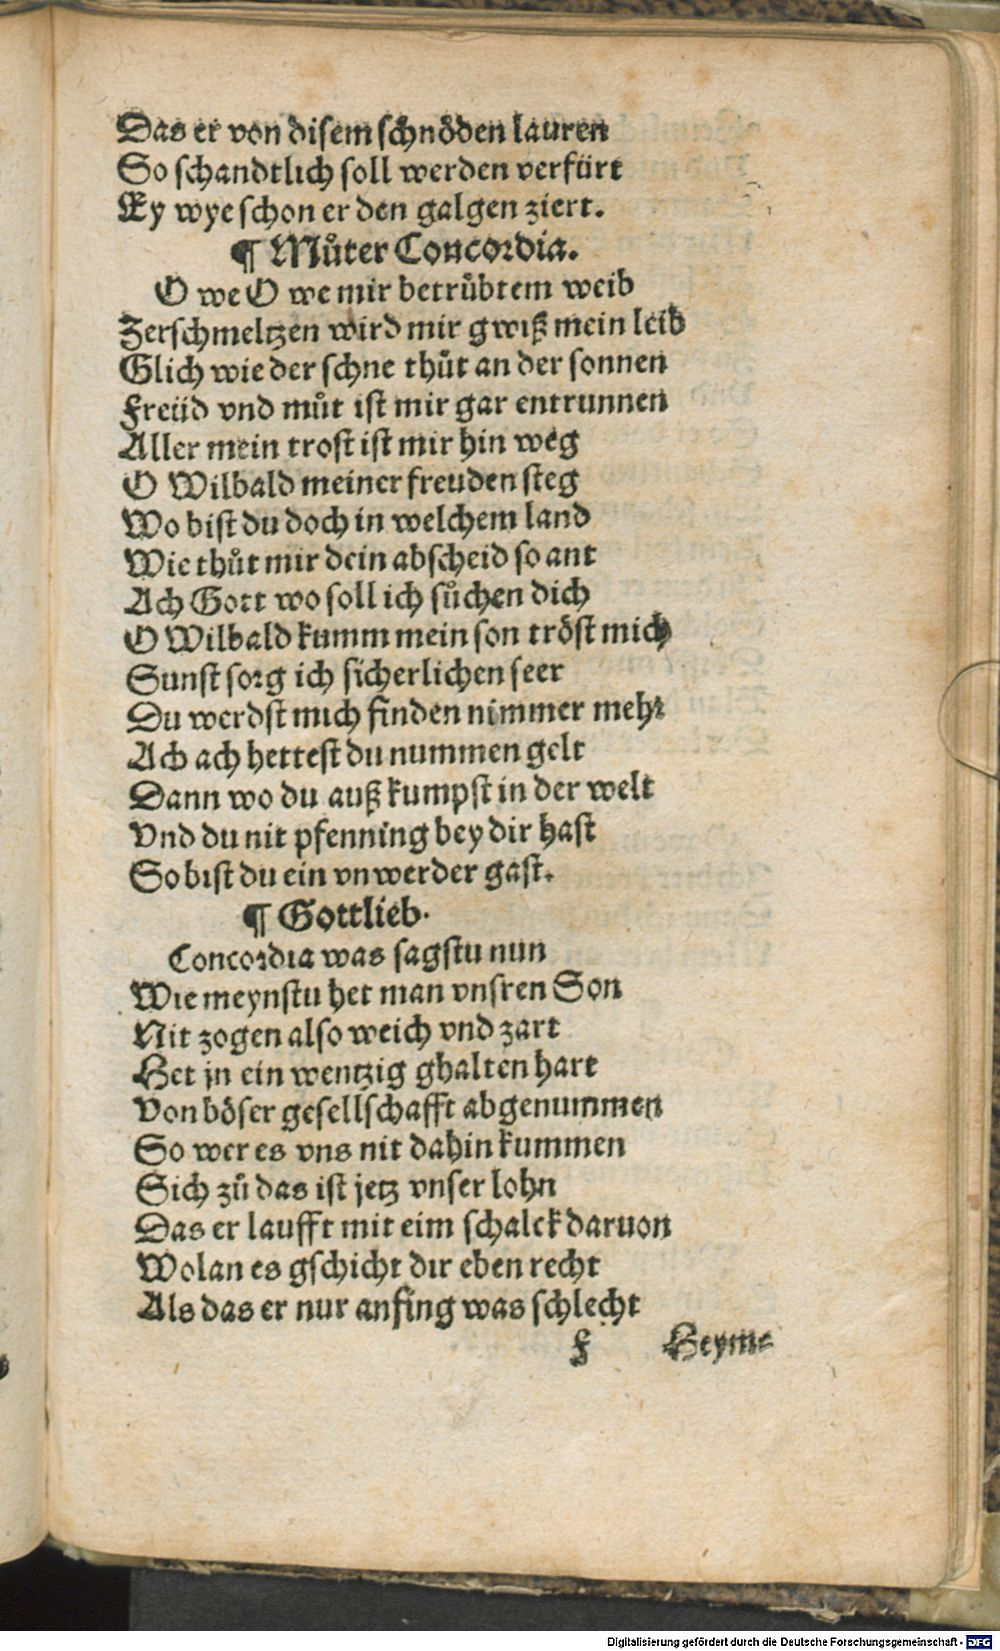 Das er von disem schnöden lauren
So schandtlich soll werden verfürt
Ey wye schon er den galgen ziert.
¶ Můter Concordia.
O we O we mir betrübtem weib
Zerschmeltzen wird mir gwiß mein leib
Glich wie der schne thůt an der sonnen
Freüd vnd můt ist mir gar entrunnen
Aller mein trost ist mir hin weg
O Wilbald meiner freuden steg
Wo bist du doch in welchem land
Wie thůt mir dein abscheid so ant
Ach Gott wo soll ich sůchen dich
O Wilbald kumm mein son tröst mich
Sunst sorg ich sicherlichen seer
Du werdst mich finden nimmer mehr
Ach ach hettest du nummen gelt
Dann wo du auß kumpst in der welt
Vnd du nit pfenning bey dir hast
So bist du ein vnwerder gast.
¶ Gottlieb.
Concordia was sagstu nun
Wie meynstu het man vnsren Son
Nit zogen also weich vnd zart
Het jn ein wentzig ghalten hart
Von böser gesellschafft abgenummen
So wer es vns nit dahin kummen
Sich zů das ist jetz vnser lohn
Das er laufft mit eim schalck daruon
Wolan es gschicht dir eben recht
Als das er nur anfing was schlecht
F Heyme
Digitalisierung gefördert durch die Deutsche Forschungsgemeinschaft - DFG